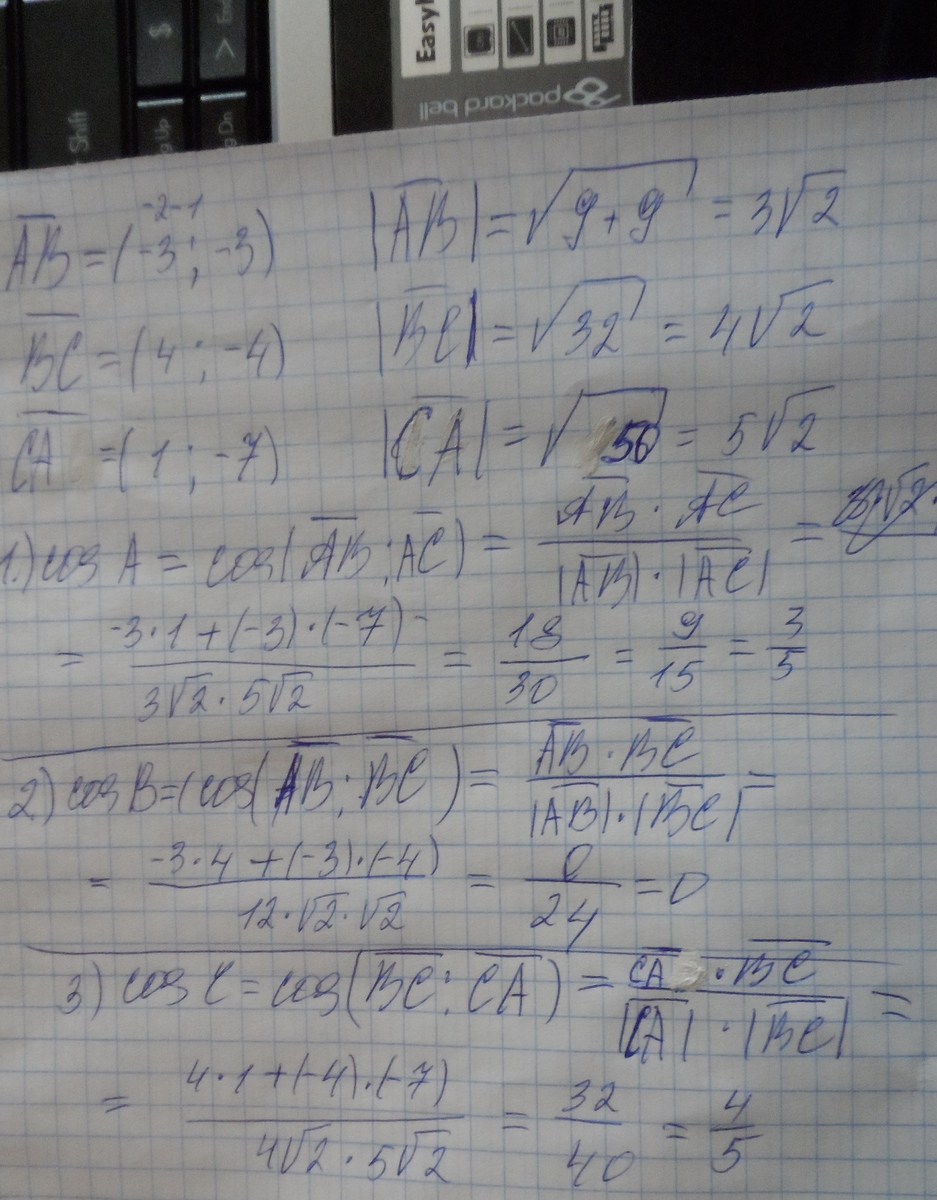 Shift
$
> End
Pg Up
Pg Dn
Easy
packard bell
-2-1
AB = (-3 ; -3) |AB| = √9+9 = 3√2
BC = (4 ; -4) |BC| = √32 = 4√2
CA = (1 ; -7) |CA| = √50 = 5√2
1.) cos A = cos(AB ; AC) = AB · AC / |AB| · |AC| =
= -3·1+(-3)·(-7) / 3√2 · 5√2 = 18/30 = 9/15 = 3/5
2) cos B = (cos(AB ; BC) = AB · BC / |AB| · |BC| =
= -3·4+(-3)·(-4) / 12·√2·√2 = 0/24 = 0
3) cos C = cos(BC ; CA) = CA · BC / |CA| · |BC| =
= 4·1+(-4)·(-7) / 4√2 · 5√2 = 32/40 = 4/5